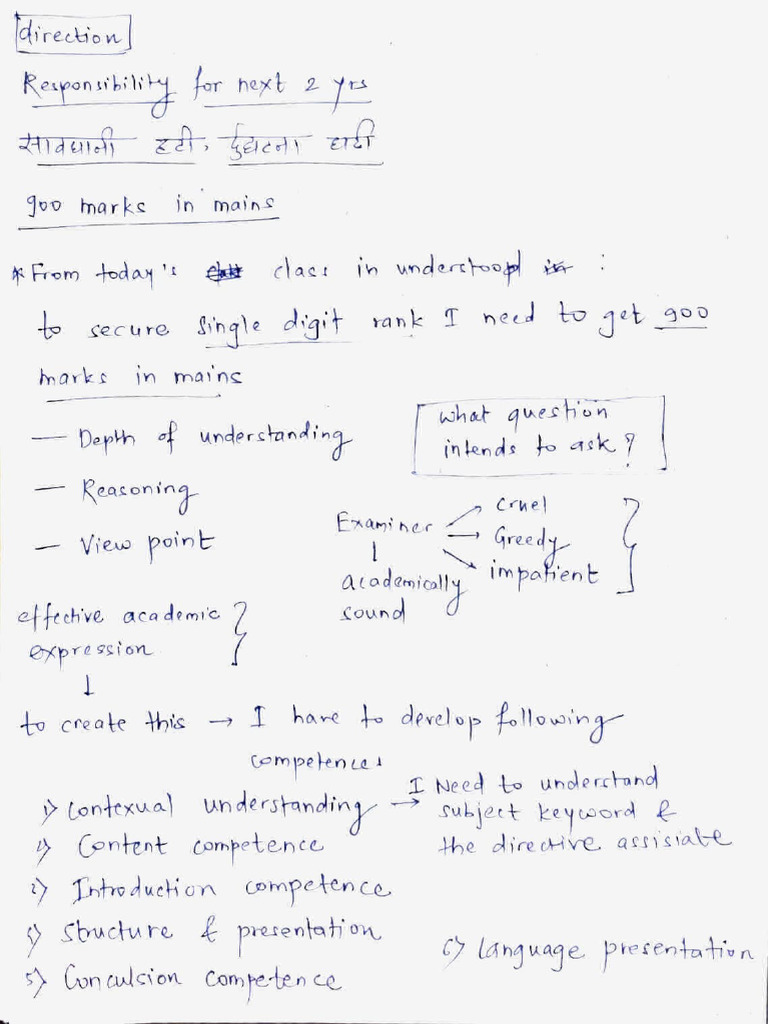 direction
Responsibility for next 2 yrs
सावधानी हटी, दुर्घटना घटी
900 marks in mains
* From today's class in understood :
to secure single digit rank I need to get 900
marks in mains
— Depth of understanding
— Reasoning
— View point
What question
intends to ask ?
Examiner
academically
sound
Cruel
Greedy
impatient
effective academic
expression
↓
to create this → I have to develop following
competences
1) Contexual understanding → I Need to understand
subject keyword &
the directive assisiate
Content competence
Introduction competence
Structure & presentation
5) Conculsion competence
6) language presentation